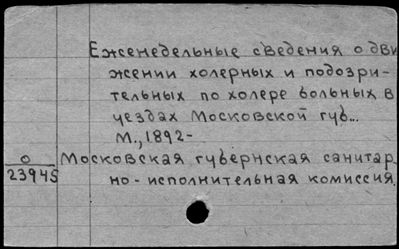 Еженедельные сведения о дви
жении холерных и подозри-
тельных по холере больных в
уездах Московской губ...
М., 1892-
0
23945
Московская губернская санитар
но-исполнительная комиссия.